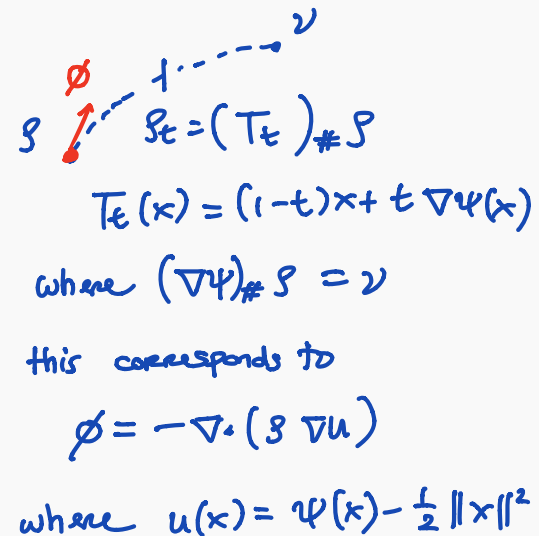 ν
ϕ
ρ
ρₜ = (Tₜ)# ρ
Tₜ(x) = (1-t)x + t ∇ψ(x)
where (∇ψ)# ρ = ν
this corresponds to
ϕ = -∇·(ρ ∇u)
where u(x) = ψ(x) - ½ ||x||²